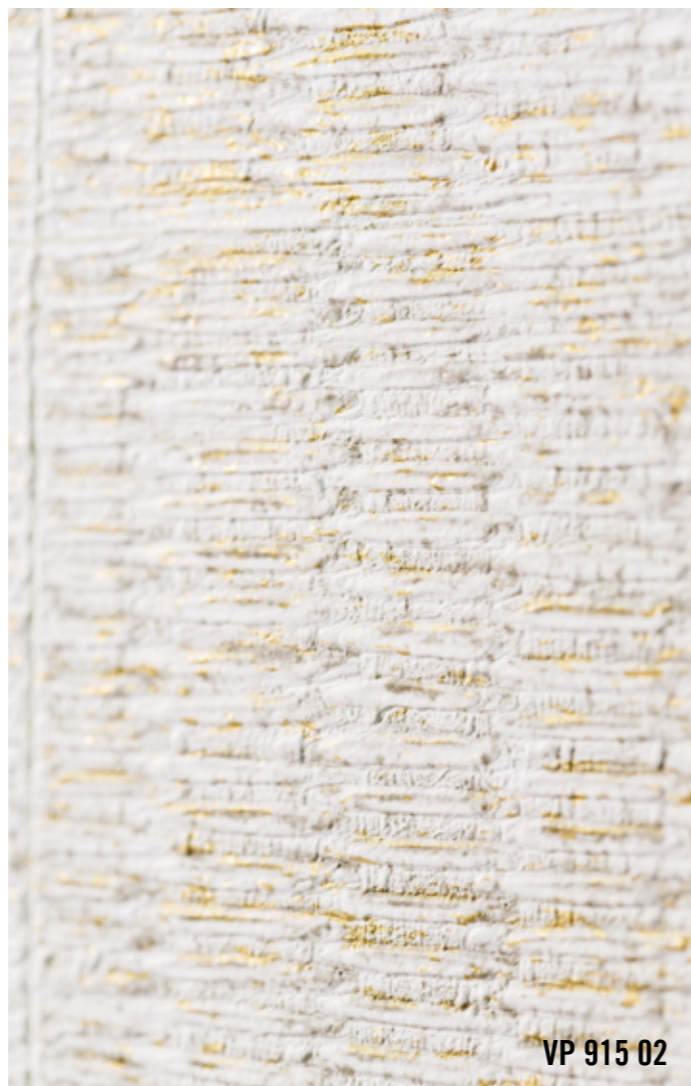 VP 915 02